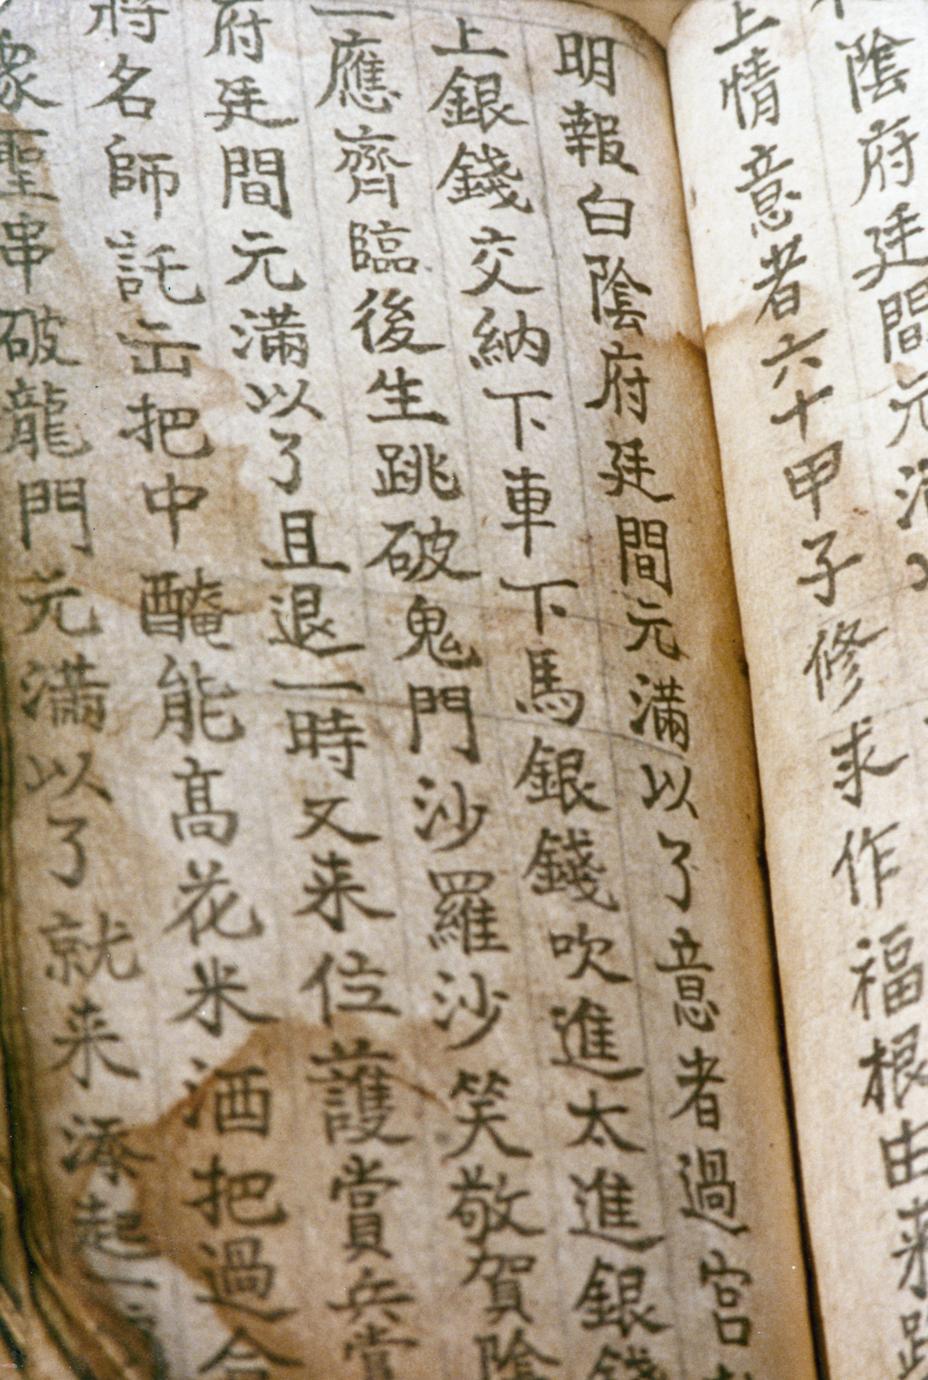 陰府廷間元滿
上情意者六十甲子修求作福根由来
明報白陰府廷間元滿以了意者過宮
上銀錢交納下車下馬銀錢吹進太進銀錢
一應齊臨後生跳破鬼門沙羅沙笑敬賀陰
府廷間元滿以了且退一時又来位護賞兵賞
將名師託出把中醃能高花米洒把過合
眾聖串破龍門元滿以了就来湊起一